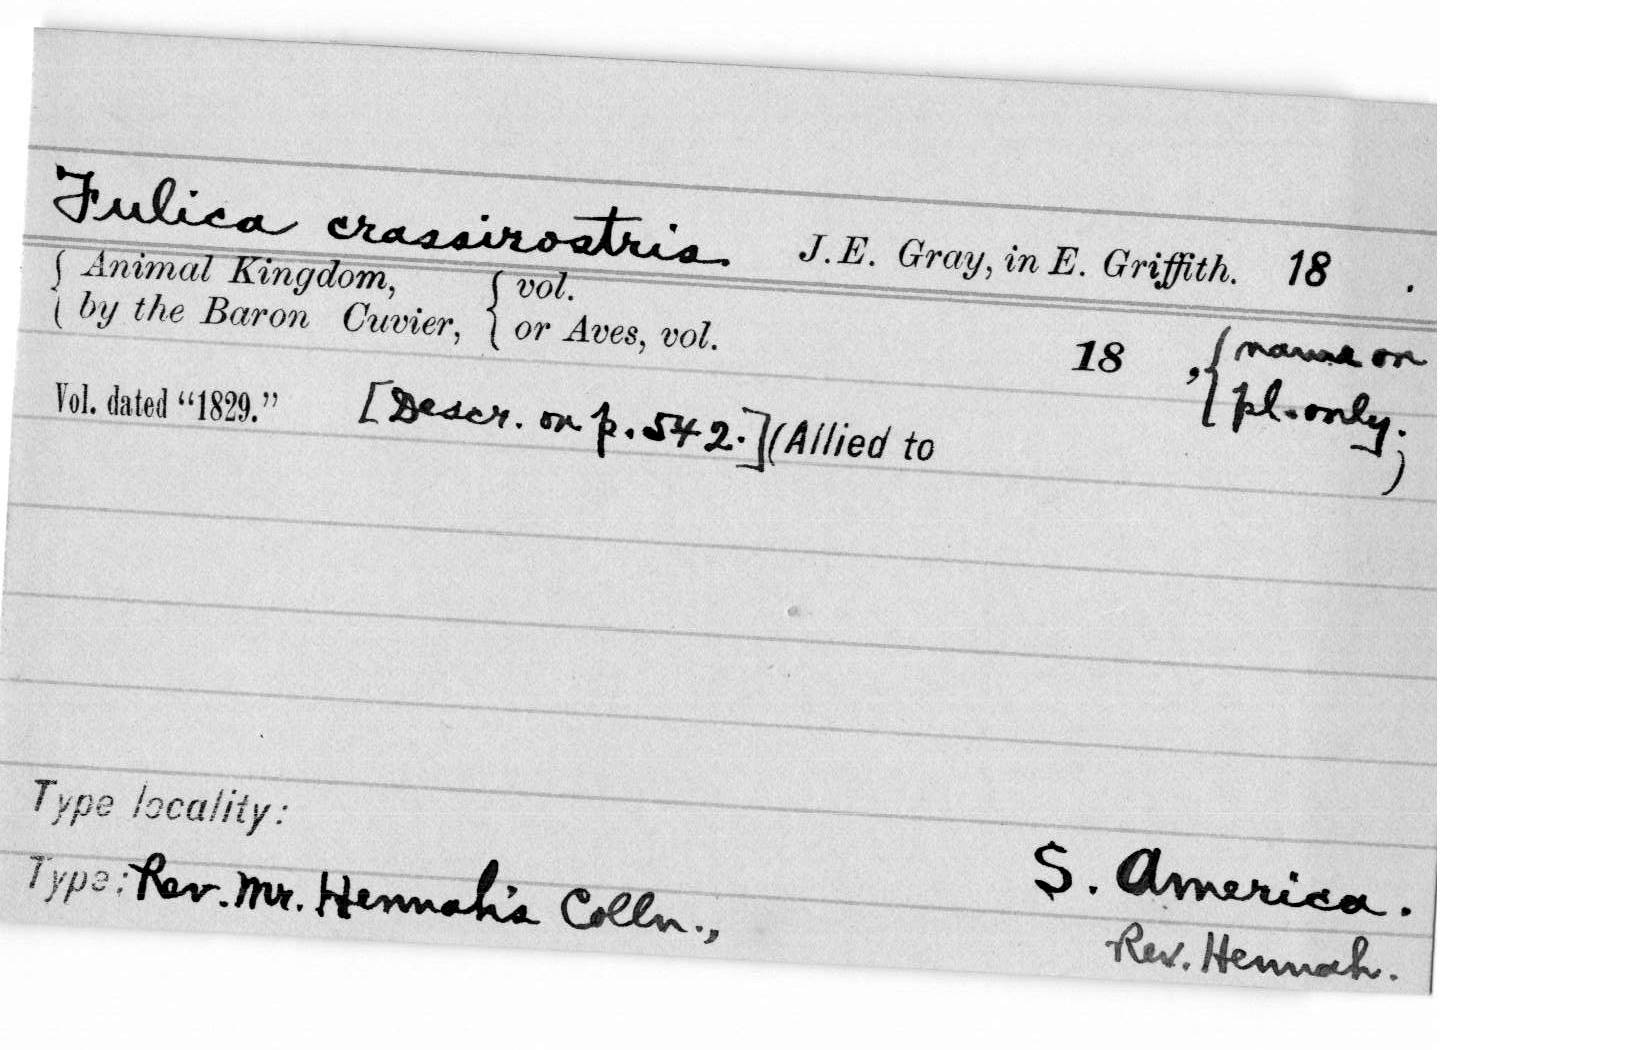 Fulica crassirostris. J.E. Gray, in E. Griffith. 18 .
{ Animal Kingdom, { vol.
{ by the Baron Cuvier, { or Aves, vol. 18 , { name on
Vol. dated "1829." [Descr. on p. 542.] (Allied to { pl. only.
)
Type locality:
S. America.
Type: Rev. Mr. Hennah's Colln.,
Rev. Hennah.